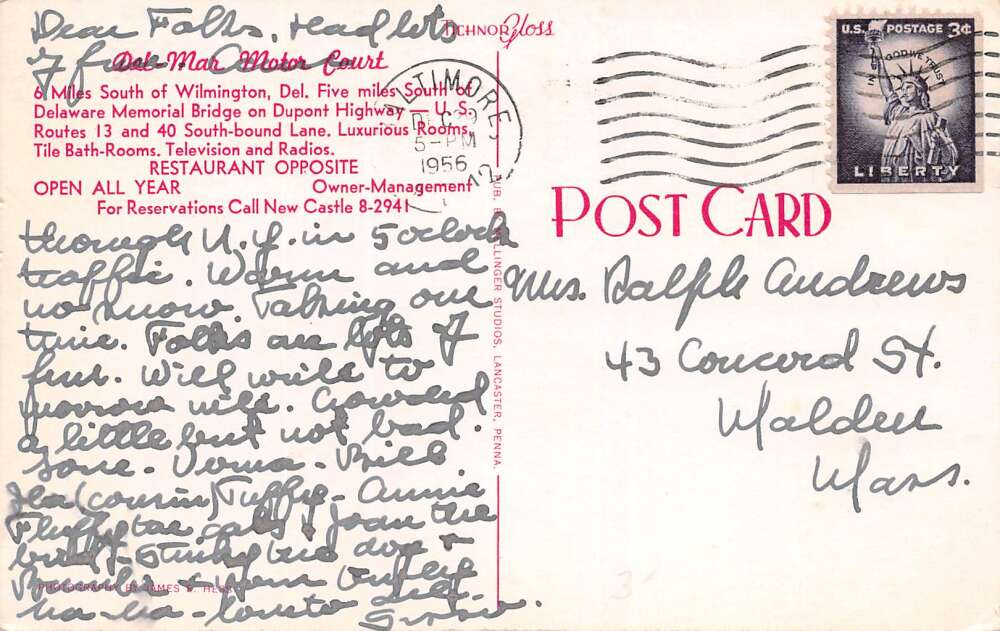 Dear Folks, Had lots
of fun.
TICHNOR Gloss
Del-Mar Motor Court
6 Miles South of Wilmington, Del. Five miles South of
Delaware Memorial Bridge on Dupont Highway — U. S.
Routes 13 and 40 South-bound Lane. Luxurious Rooms,
Tile Bath-Rooms. Television and Radios.
RESTAURANT OPPOSITE
OPEN ALL YEAR Owner-Management
For Reservations Call New Castle 8-2941
through N.Y. in 5 oclock
traffic. Warm and
no snow. Taking our
time. Folks are lots of
fun. Will write to
morrow nite. Crowded
a little but not bad.
Verna - Bill
(cousin) Tuffy - Annie
Fluffy the cats, Joan the
bird - Stinky the dog +
ha-ha-
PHOTOGRAPHY BY JAMES E. HESS
PUB. BY MELLINGER STUDIOS, LANCASTER, PENNA.
BALTIMORE
5-PM
1956
U.S. POSTAGE 3¢
IN GOD WE TRUST
LIBERTY
POST CARD
Mrs. Ralph Andrews
43 Concord St.
Malden
Mass.
3